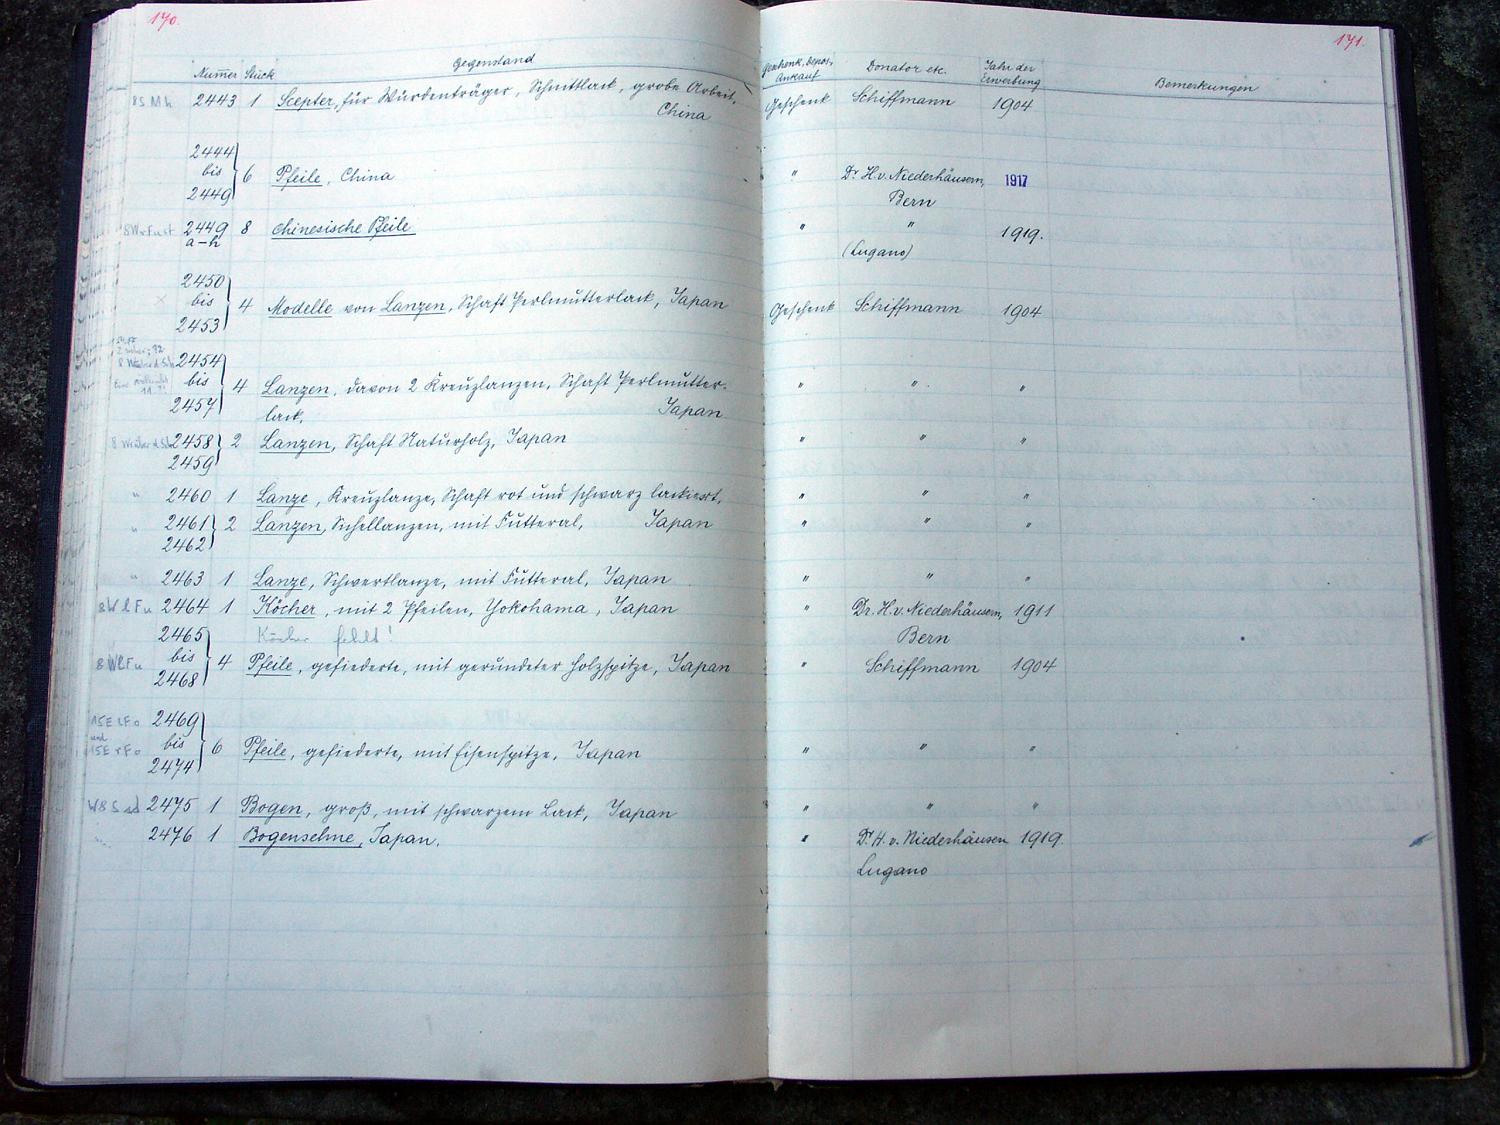 170.
171.
Nummer Stück Gegenstand Geschenk, Depos., Ankauf Donator etc. Jahr der Erwerbung Bemerkungen
8 S M h 2443 1 Scepter, für Würdenträger, Schnittlack, grobe Arbeit, Geschenk Schiffmann 1904
China
2444
bis 6 Pfeile, China " Dr. H. v. Niederhäusern, 1917
2449 Bern
2449 8 chinesische Pfeile " " 1919.
a-h (Lugano)
2450
bis 4 Modelle von Lanzen, Schaft Perlmutterlack, Japan Geschenk Schiffmann 1904
2453
2454
bis 4 Lanzen, davon 2 Kreuzlanzen, Schaft Perlmutter- " " "
2457 lack, Japan
2458 2 Lanzen, Schaft Naturholz, Japan " " "
2459
" 2460 1 Lanze, Kreuzlanze, Schaft rot und schwarz lackiert, " " "
" 2461 2 Lanzen, Sichellanzen, mit Futteral, Japan " " "
2462
" 2463 1 Lanze, Schwertlanze, mit Futteral, Japan " " "
8 W l Fu 2464 1 Köcher, mit 2 Pfeilen, Yokohama, Japan " Dr. H. v. Niederhäusern, 1911
2465 Köcher fehlt! Bern
8 W l Fu bis 4 Pfeile, gefiederte, mit gerundeter Holzspitze, Japan " Schiffmann 1904
2468
15 E l Fo 2469
und
15 E r Fo bis 6 Pfeile, gefiederte, mit Eisenspitze, Japan " " "
2474
2475 1 Bogen, groß, mit schwarzem Lack, Japan " " "
2476 1 Bogensehne, Japan. " Dr. H. v. Niederhäusern 1919.
Lugano